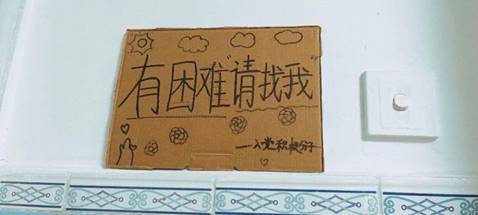 有困难“请找我”
——入党积极分子